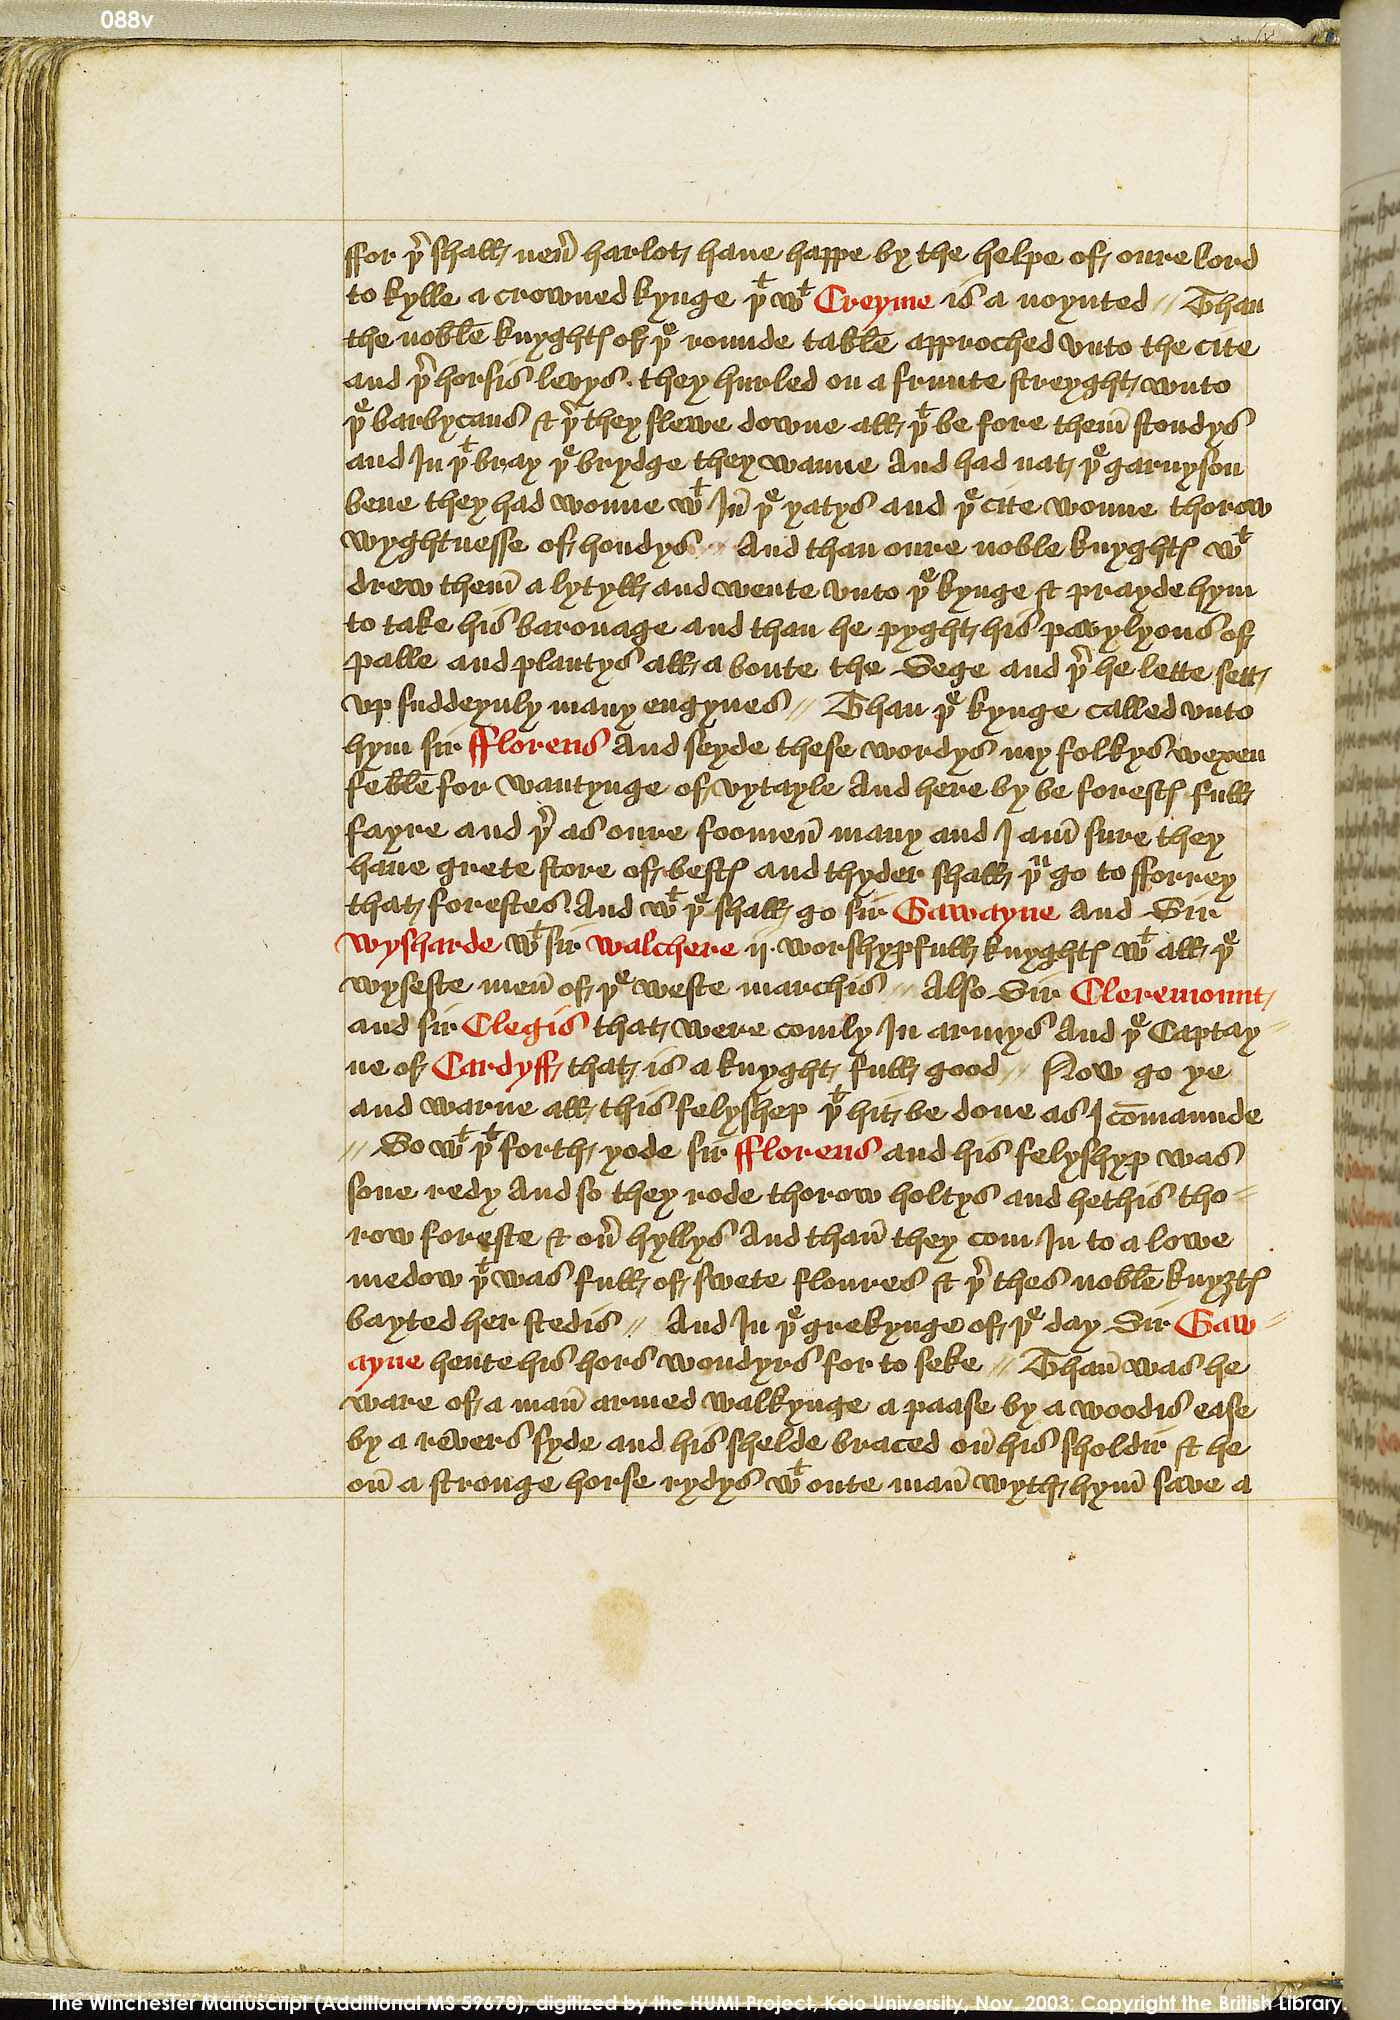 088v
ffor þͬ shall neu̅ harlot haue happe by the helpe of oure lord
to kylle a crowned kynge þͭ wͭ Creyme is a noynted // Than
the noble knyghtꝭ of þͤ rounde table approched vnto the cite
and þͬ horsis levys . they hurled on a frunte streyght vnto
þͤ barbycans & þͬ they slewe downe all þͭ be fore them̅ stondys
and In þͭ bray þͤ brydge they wanne And had nat þͤ garnyson
bene they had wonne wͭ In̅ þͤ yatys and þͤ cite wonne thorow
wyghtnesse of hondys // And than oure noble knyghtꝭ wͭ
drew them̅ a lytyll and wente vnto þͤ kynge & prayde hym
to take his baronage and than he pyght his pavylyons of
palle and plantys all a boute the Sege and þͬ he lette sett
vp suddeynly many engynes // Than þͤ kynge called vnto
hym sir fflorens And seyde these wordys my folkys wexen
feble for wantynge of vytayle And here by be forestꝭ full
fayre and þͬ as oure foomen̅ many and I am̅ sure they
haue grete store of bestꝭ and thyder shall þͧ go to fforrey
that forestes And wͭ þͤ shall go sir Gawayne And Sir
Wysharde wͭ sir Walchere ij worshypfull knyghtꝭ wͭ all þͤ
wyseste men̅ of þͤ weste marchis // Also Sir Cleremount
and sir Clegis that were comly In armys And þͤ Captay=
ne of Cardyff that is a knyght full good // Now go ye
and warne all this felyshep þͭ hit be done as I co̅maunde
// So wͭ þͭ forth yode sir fflorens and his felyshyp was
sone redy And so they rode thorow holtys and hethis tho=
row foreste & ou̅ hyllys And than̅ they com In to a lowe
medow þͭ was full of swete floures & þͬ thes noble knyȝtꝭ
bayted her stedis // And In þͤ grekynge of þͤ day Sir Gaw=
ayne hente his hors wondyrs for to seke // Than̅ was he
ware of a man̅ armed walkynge a paase by a woodis ease
by a revers syde and his shelde braced on̅ his sholdir & he
on̅ a stronge horse rydys wͭ oute man̅ wyth hym̅ save a
The Winchester Manuscript (Additional MS 59678), digitized by the HUMI Project, Keio University, Nov. 2003; Copyright the British Library.